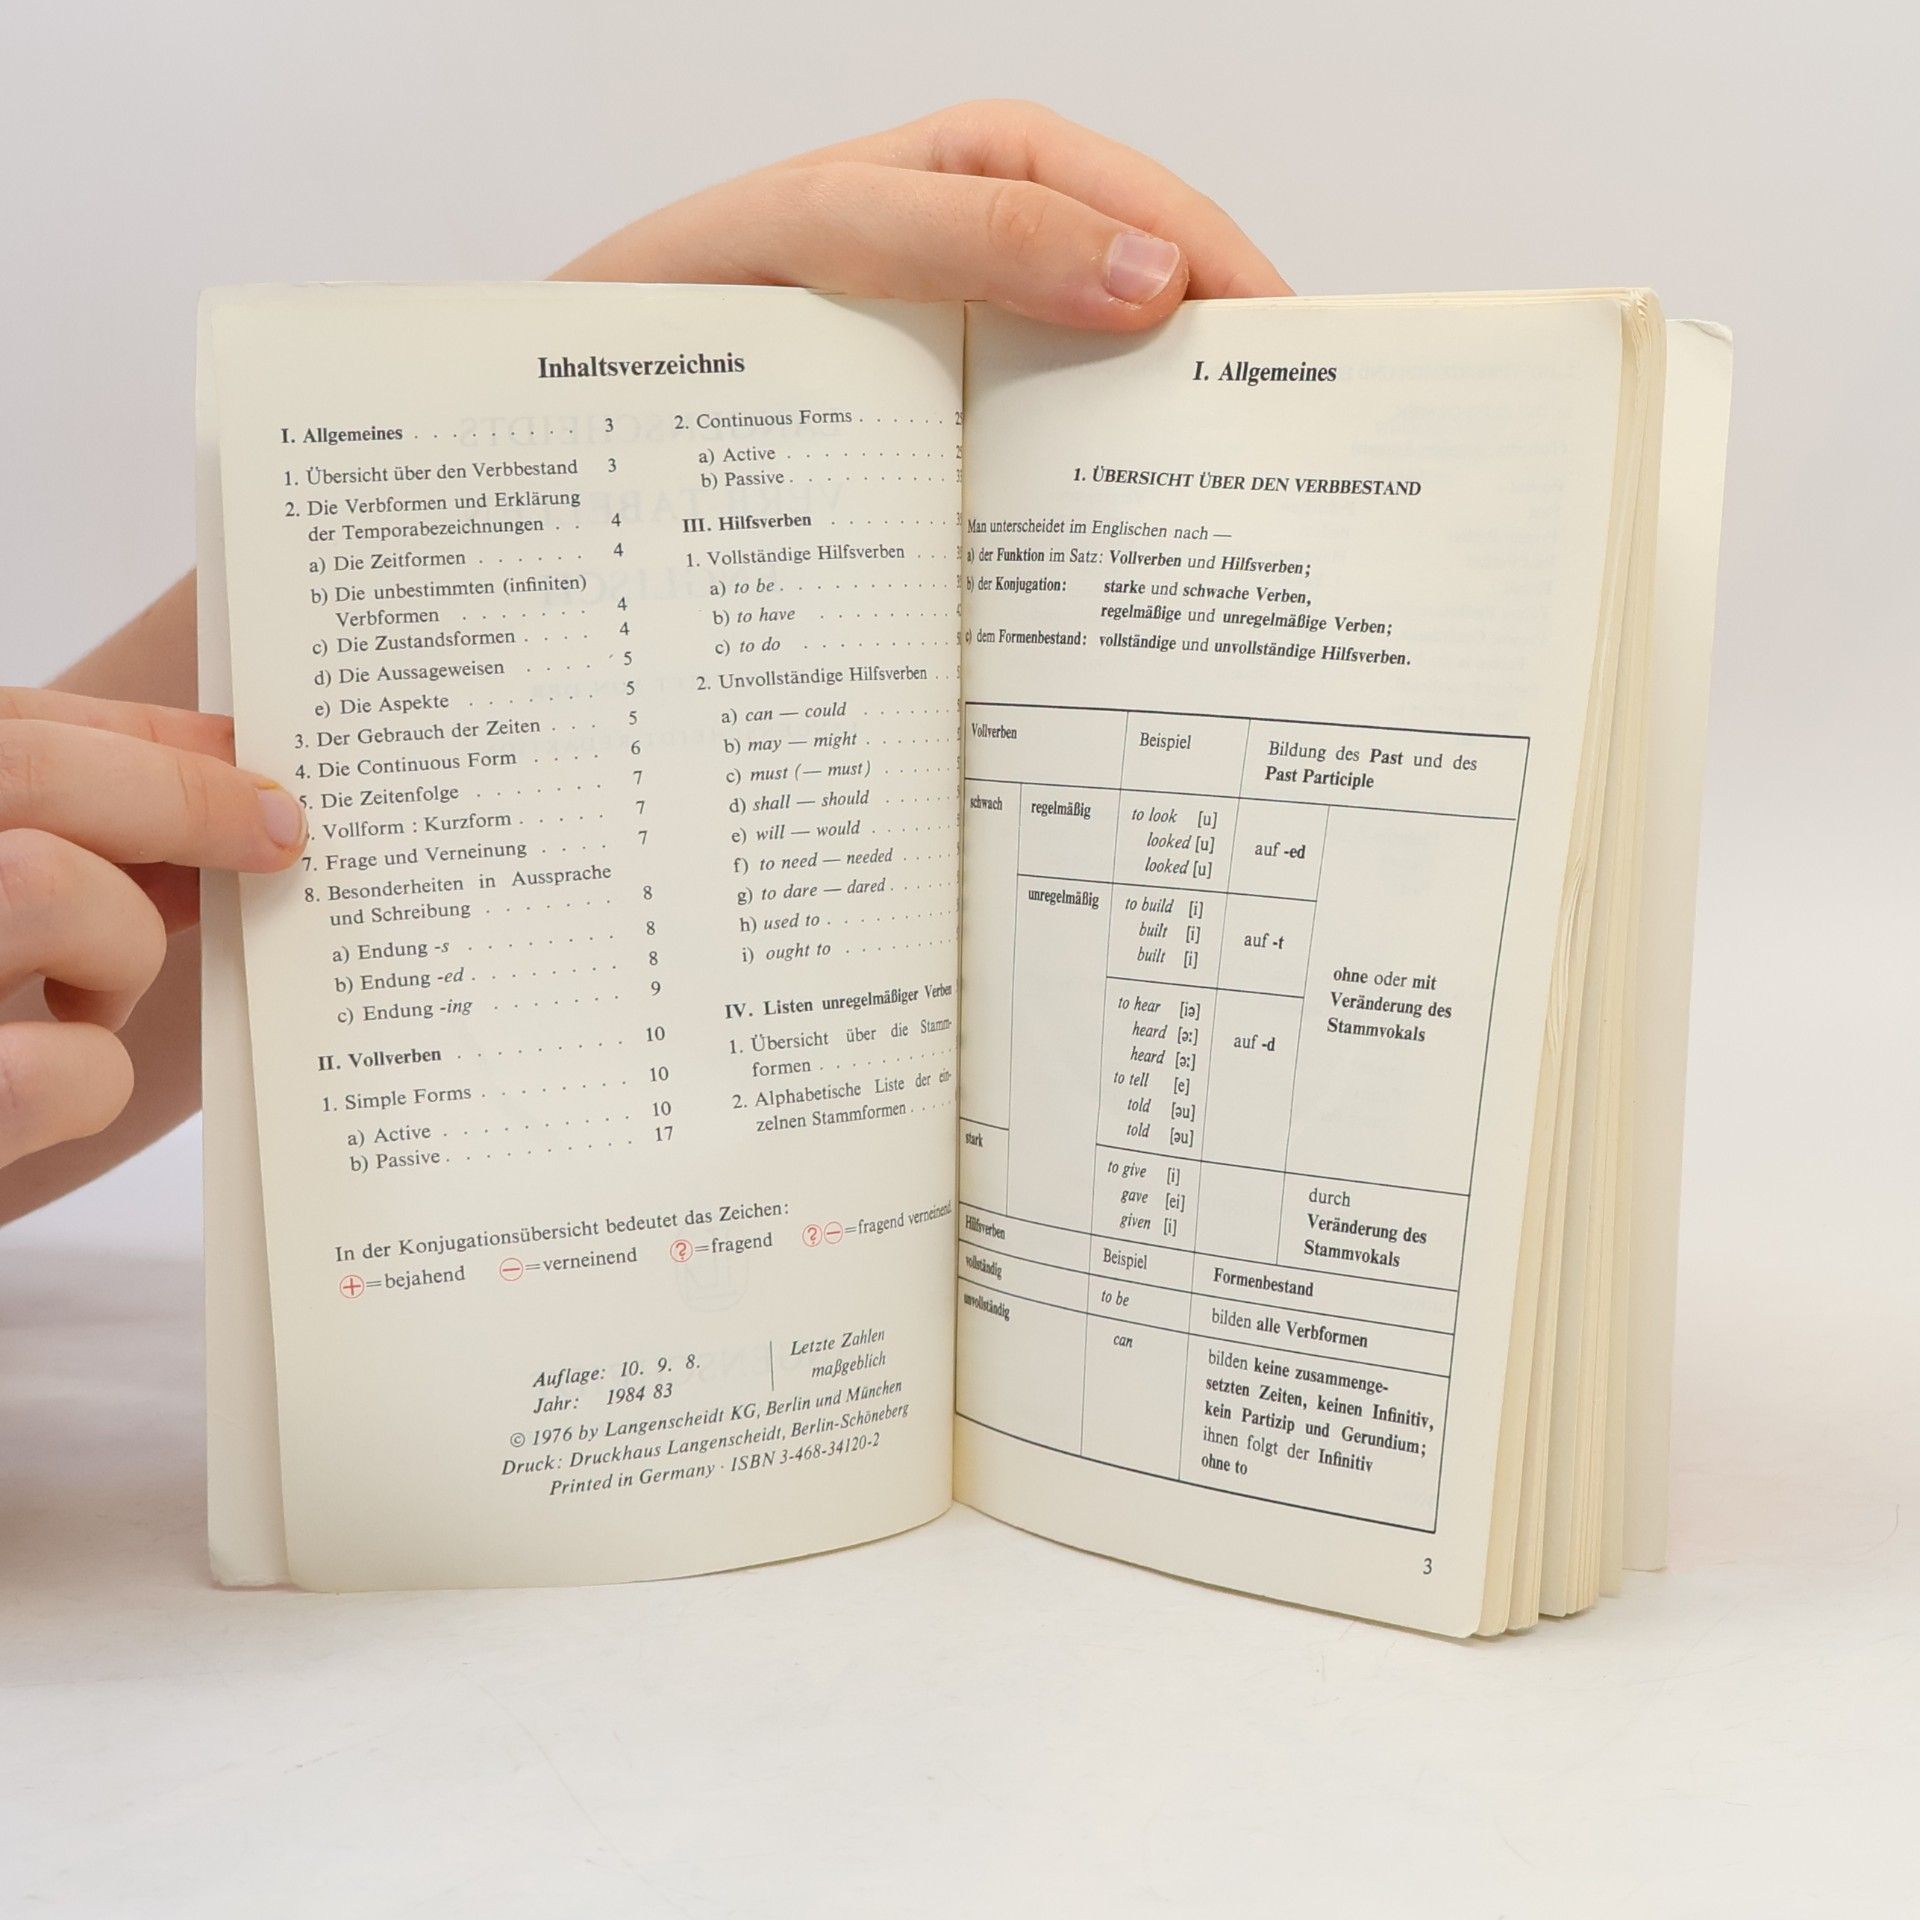 Inhaltsverzeichnis
I. Allgemeines . . . . . . . . . 3
1. Übersicht über den Verbbestand 3
2. Die Verbformen und Erklärung
der Temporabezeichnungen . . 4
a) Die Zeitformen . . . . . . 4
b) Die unbestimmten (infiniten)
Verbformen . . . . . . . 4
c) Die Zustandsformen . . . . 4
d) Die Aussageweisen . . . . 5
e) Die Aspekte . . . . . . . 5
3. Der Gebrauch der Zeiten . . . 5
4. Die Continuous Form . . . . 6
5. Die Zeitenfolge . . . . . . . 7
. Vollform : Kurzform . . . . . 7
7. Frage und Verneinung . . . . 7
8. Besonderheiten in Aussprache
und Schreibung . . . . . . . 8
a) Endung -s . . . . . . . . 8
b) Endung -ed . . . . . . . . 8
c) Endung -ing . . . . . . . 9
II. Vollverben . . . . . . . . . 10
1. Simple Forms . . . . . . . . 10
a) Active . . . . . . . . . . 10
b) Passive . . . . . . . . . . 17
2. Continuous Forms . . . . . .
a) Active . . . . . . . . . .
b) Passive . . . . . . . . . .
III. Hilfsverben . . . . . . . .
1. Vollständige Hilfsverben . . .
a) to be . . . . . . . . . .
b) to have . . . . . . . .
c) to do . . . . . . . . .
2. Unvollständige Hilfsverben . .
a) can — could . . . . . . .
b) may — might . . . . . . .
c) must (— must) . . . . . .
d) shall — should . . . . . .
e) will — would . . . . . . .
f) to need — needed . . . . .
g) to dare — dared . . . . . .
h) used to . . . . . . . . . .
i) ought to . . . . . . . . .
IV. Listen unregelmäßiger Verben
1. Übersicht über die Stamm-
formen . . . . . . . . . .
2. Alphabetische Liste der ein-
zelnen Stammformen . . . . .
In der Konjugationsübersicht bedeutet das Zeichen:
⊕=bejahend ⊖=verneinend ?=fragend ?⊖=fragend verneinend
Auflage: 10. 9. 8. Letzte Zahlen
Jahr: 1984 83 maßgeblich
© 1976 by Langenscheidt KG, Berlin und München
Druck: Druckhaus Langenscheidt, Berlin-Schöneberg
Printed in Germany · ISBN 3-468-34120-2
I. Allgemeines
1. ÜBERSICHT ÜBER DEN VERBBESTAND
Man unterscheidet im Englischen nach —
a) der Funktion im Satz: Vollverben und Hilfsverben;
b) der Konjugation: starke und schwache Verben,
regelmäßige und unregelmäßige Verben;
c) dem Formenbestand: vollständige und unvollständige Hilfsverben.
Vollverben Beispiel Bildung des Past und des
Past Participle
schwach regelmäßig to look [u]
looked [u] auf -ed
looked [u]
unregelmäßig to build [i]
built [i] auf -t
built [i]
ohne oder mit
Veränderung des
Stammvokals
to hear [iə]
heard [ə:] auf -d
heard [ə:]
to tell [e]
told [əu]
told [əu]
stark
to give [i] durch
gave [ei] Veränderung des
given [i] Stammvokals
Hilfsverben Beispiel Formenbestand
vollständig to be bilden alle Verbformen
unvollständig can bilden keine zusammenge-
setzten Zeiten, keinen Infinitiv,
kein Partizip und Gerundium;
ihnen folgt der Infinitiv
ohne to
3